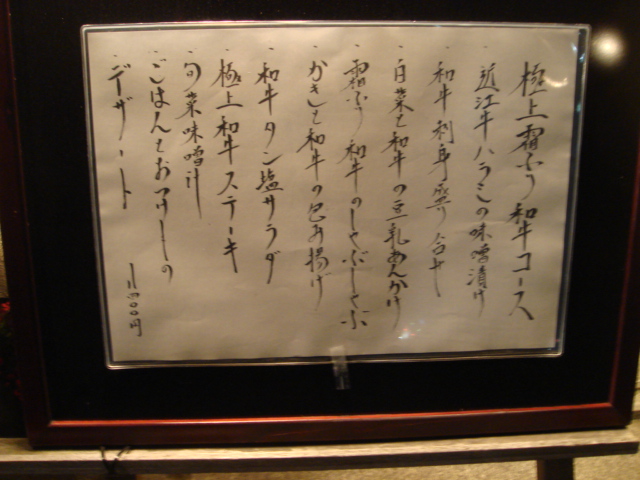 極上霜ふり和牛コース
・近江牛ハラミの味噌漬け
・和牛刺身盛り合せ
・白菜と和牛の豆乳あんかけ
・霜ふり和牛のしゃぶしゃぶ
・かきと和牛の包み揚げ
・和牛タン塩サラダ
・極上和牛ステーキ
・旬菜味噌汁
・ごはんとおつけもの
・デザート